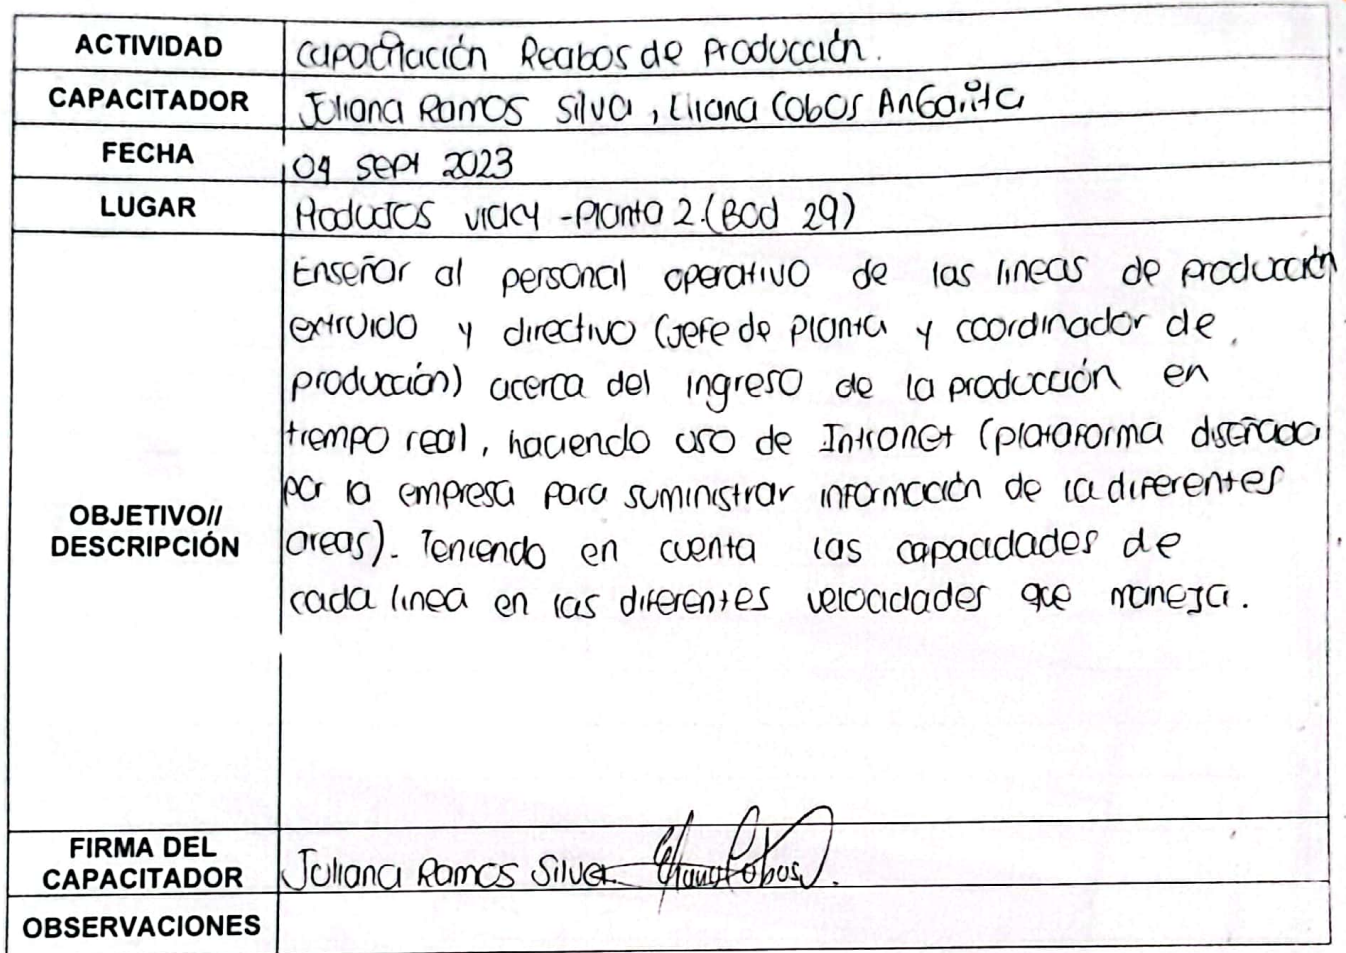 ACTIVIDAD Capacitación Recibos de Producción.
CAPACITADOR Juliana Ramos Silva, Liliana Cobos Angarita
FECHA 04 Sept 2023
LUGAR Productos Vicky - Planta 2. (Bod 29)
Enseñar al personal operativo de las lineas de producción
extruido y directivo (Jefe de Planta y coordinador de
producción) acerca del ingreso de la producción en
tiempo real, haciendo uso de Intranet (plataforma diseñada
por la empresa para suministrar información de la diferentes
OBJETIVO// DESCRIPCIÓN areas). Teniendo en cuenta las capacidades de
cada linea en las diferentes velocidades que maneja.
FIRMA DEL CAPACITADOR Juliana Ramos Silva. Liliana Cobos.
OBSERVACIONES